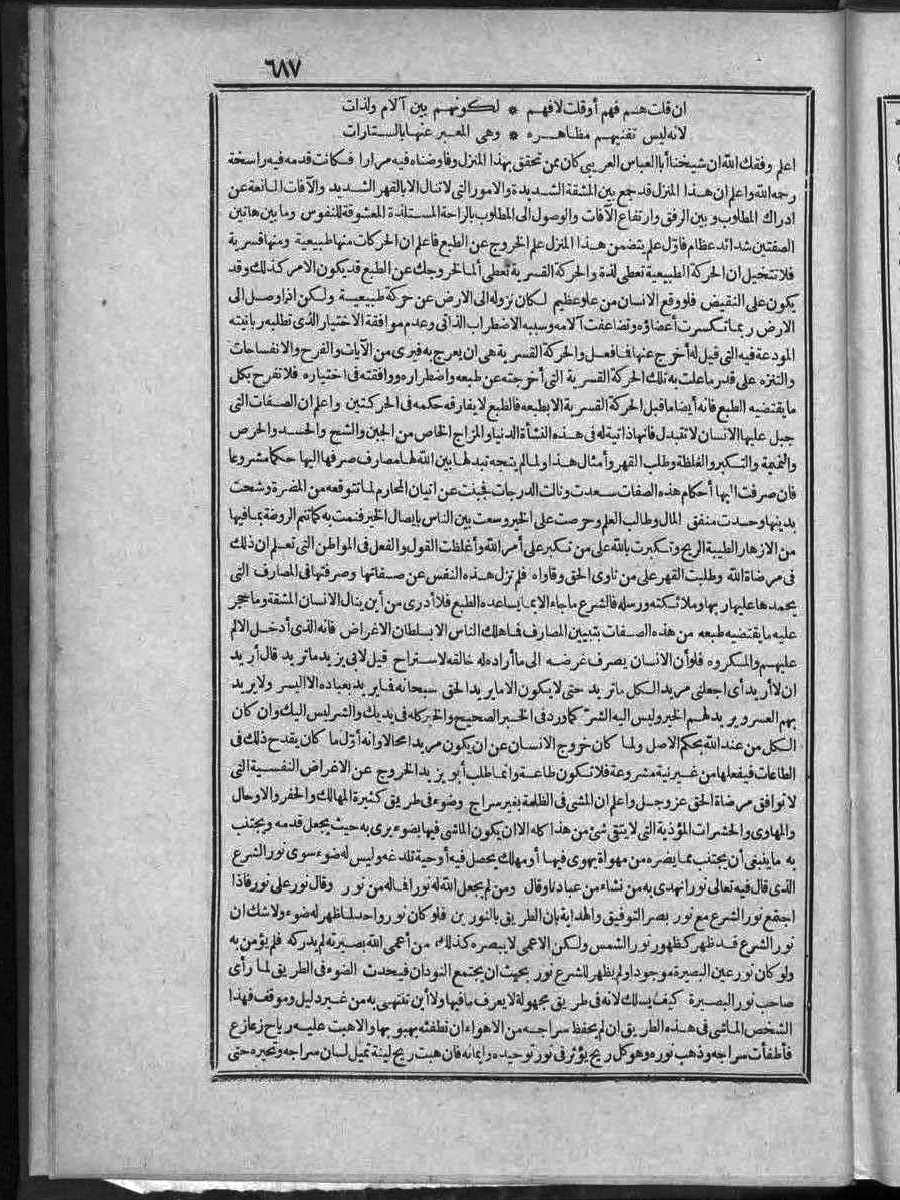 ٦٨٧
ان قلت هم فهم أو قلت لا فهم * لكونهم بين آلام ولذات
لانه ليس تفنيهم مظاهره * وهى المعبر عنها بالستارات
اعلم وفقك الله ان شيخنا أبا العباس العريبى كان ممن تحقق بهذا المنزل وفاوضناه فيه مرارا فكانت قدمه فيه راسخة
رحمه الله واعلم ان هذا المنزل قد جمع بين المشقة الشديدة والامور التى لا تنال الا بالقهر الشديد والآفات المانعة عن
ادراك المطلوب وبين الرفق وارتفاع الآفات والوصول الى المطلوب بالراحة المستلذة المعشوقة للنفوس وما بين هاتين
الصفتين شدائد عظام فاول علم يتضمن هذا المنزل علم الخروج عن الطبع فاعلم ان الحركات منها طبيعية ومنها قسرية
فلا تتخيل ان الحركة الطبيعية تعطى لذة والحركة القسرية تعطى ألما لخروجك عن الطبع قد يكون الامر كذلك وقد
يكون على النقيض فلو وقع الانسان من علو عظيم لكان نزوله الى الارض عن حركة طبيعية ولكن اذا وصل الى
الارض ربما تكسرت أعضاؤه وتضاعفت آلامه وسببه الاضطراب الذاتى وعدم موافقة الاختيار الذى تطلبه ربانيته
المودعة فيه التى قيل له أخرج عنها فما فعل والحركة القسرية هى ان يعرج به فيرى من الآيات والفرح والانفساحات
والتنزه على قدر ما علت به تلك الحركة القسرية التى أخرجته عن طبعه واضطراره ووافقته فى اختياره فلا تفرح بكل
ما يقتضيه الطبع فانه أيضا ما قبل الحركة القسرية الا بطبعه فالطبع لا يفارقه حكمه فى الحركتين واعلم ان الصفات التى
جبل عليها الانسان لا تتبدل فانها ذاتية له فى هذه النشأة الدنيا والمزاج الخاص من الجبن والشح والحسد والحرص
والنميمة والتكبر والغلظة وطلب القهر وأمثال هذا ولما لم يتجه تبدلها بين الله لها مصارف صرفها اليها حكما مشروعا
فان صرفت اليها أحكام هذه الصفات سعدت ونالت الدرجات فجبنت عن اتيان المحارم لما تتوقعه من المضرة وشحت
بدينها وحسدت منفق المال وطالب العلم وحرصت على الخير وسعت بين الناس بايصال الخير فنمت به كما تنم الروضة بما فيها
من الازهار الطيبة الريح وتكبرت بالله على من تكبر على أمر الله وأغلظت القول والفعل فى المواطن التى تعلم ان ذلك
فى مرضاة الله وطلبت القهر على من ناوى الحق وقاواه فلم تزل هذه النفس عن صفاتها وصرفتها فى المصارف التى
يحمدها عليها ربها وملائكته ورسله فالشرع ما جاء الا بما يساعده الطبع فلا أدرى من أين ينال الانسان المشقة وما حجر
عليه ما يقتضيه طبعه من هذه الصفات بتبيين المصارف فما هلك الناس الا بسلطان الاغراض فانه الذى أدخل الالم
عليهم والمكروه فلو أن الانسان يصرف غرضه الى ما أراده له خالقه لاستراح قيل لابى يزيد ما تريد قال أريد
ان لا أريد أى اجعلنى مريدا لكل ما تريد حتى لا يكون الا ما يريد الحق سبحانه فما يريد بعباده الا اليسر ولا يريد
بهم العسر ويريد لهم الخير وليس اليه الشر كما ورد فى الخبر الصحيح والخير كله فى يديك والشر ليس اليك وان كان
الكل من عند الله بحكم الاصل ولما كان خروج الانسان عن ان يكون مريدا محالا وانه أول ما كان يقدح ذلك فى
الطاعات فيفعلها من غير نية مشروعة فلا تكون طاعة وانما طلب أبو يزيد الخروج عن الاغراض النفسية التى
لا توافق مرضاة الحق عز وجل واعلم ان المشى فى الظلمة بغير سراج وضوء فى طريق كثيرة المهالك والحفر والاوحال
والمهاوى والحشرات المؤذية التى لا يتقى شئ من هذا كله الا ان يكون الماشى فيها بضوء يرى به حيث يجعل قدمه ويجتنب
به ما ينبغى أن يجتنب مما يضره من مهواة يهوى فيها أو مهلك يحصل فيه أو حية تلدغه وليس له ضوء سوى نور الشرع
الذى قال فيه تعالى نورا نهدى به من نشاء من عبادنا وقال ومن لم يجعل الله له نورا فما له من نور وقال نور على نور فاذا
اجتمع نور الشرع مع نور بصر التوفيق والهداية بان الطريق بالنورين فلو كان نور واحد لما ظهر له ضوء ولا شك ان
نور الشرع قد ظهر كظهور نور الشمس ولكن الاعمى لا يبصره كذلك من أعمى الله بصيرته لم يدركه فلم يؤمن به
ولو كان نور عين البصيرة موجودا ولم يظهر للشرع نور بحيث ان يجتمع النوران فيحدث الضوء فى الطريق لما رأى
صاحب نور البصيرة كيف يسلك لانه فى طريق مجهولة لا يعرف ما فيها ولا أين تنتهى به من غير دليل وموقف فهذا
الشخص الماشى فى هذه الطريق ان لم يحفظ سراجه من الاهواء ان تطفئه بهبوبها والا هبت عليه رياح زعازع
فأطفأت سراجه وذهب نوره وهو كل ريح يؤثر فى نور توحيده وايمانه فان هبت ريح لينة تميل لسان سراجه وتحيره حتى